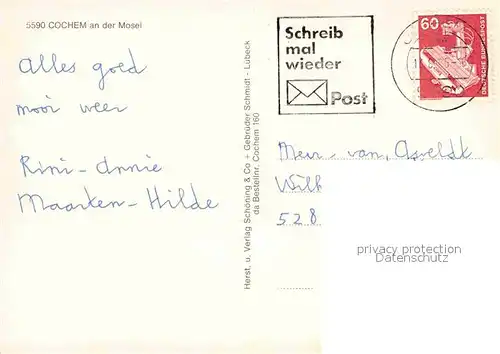 5590 COCHEM an der Mosel
Alles goed
mooi weer
Rini-Annie
Maarten-Hilde
Herst. u. Verlag Schöning & Co + Gebrüder Schmidt - Lübeck
da Bestellnr. Cochem 160
Schreib
mal
wieder
Post
60
DEUTSCHE BUNDESPOST
van
Wilh
528
privacy protection
Datenschutz